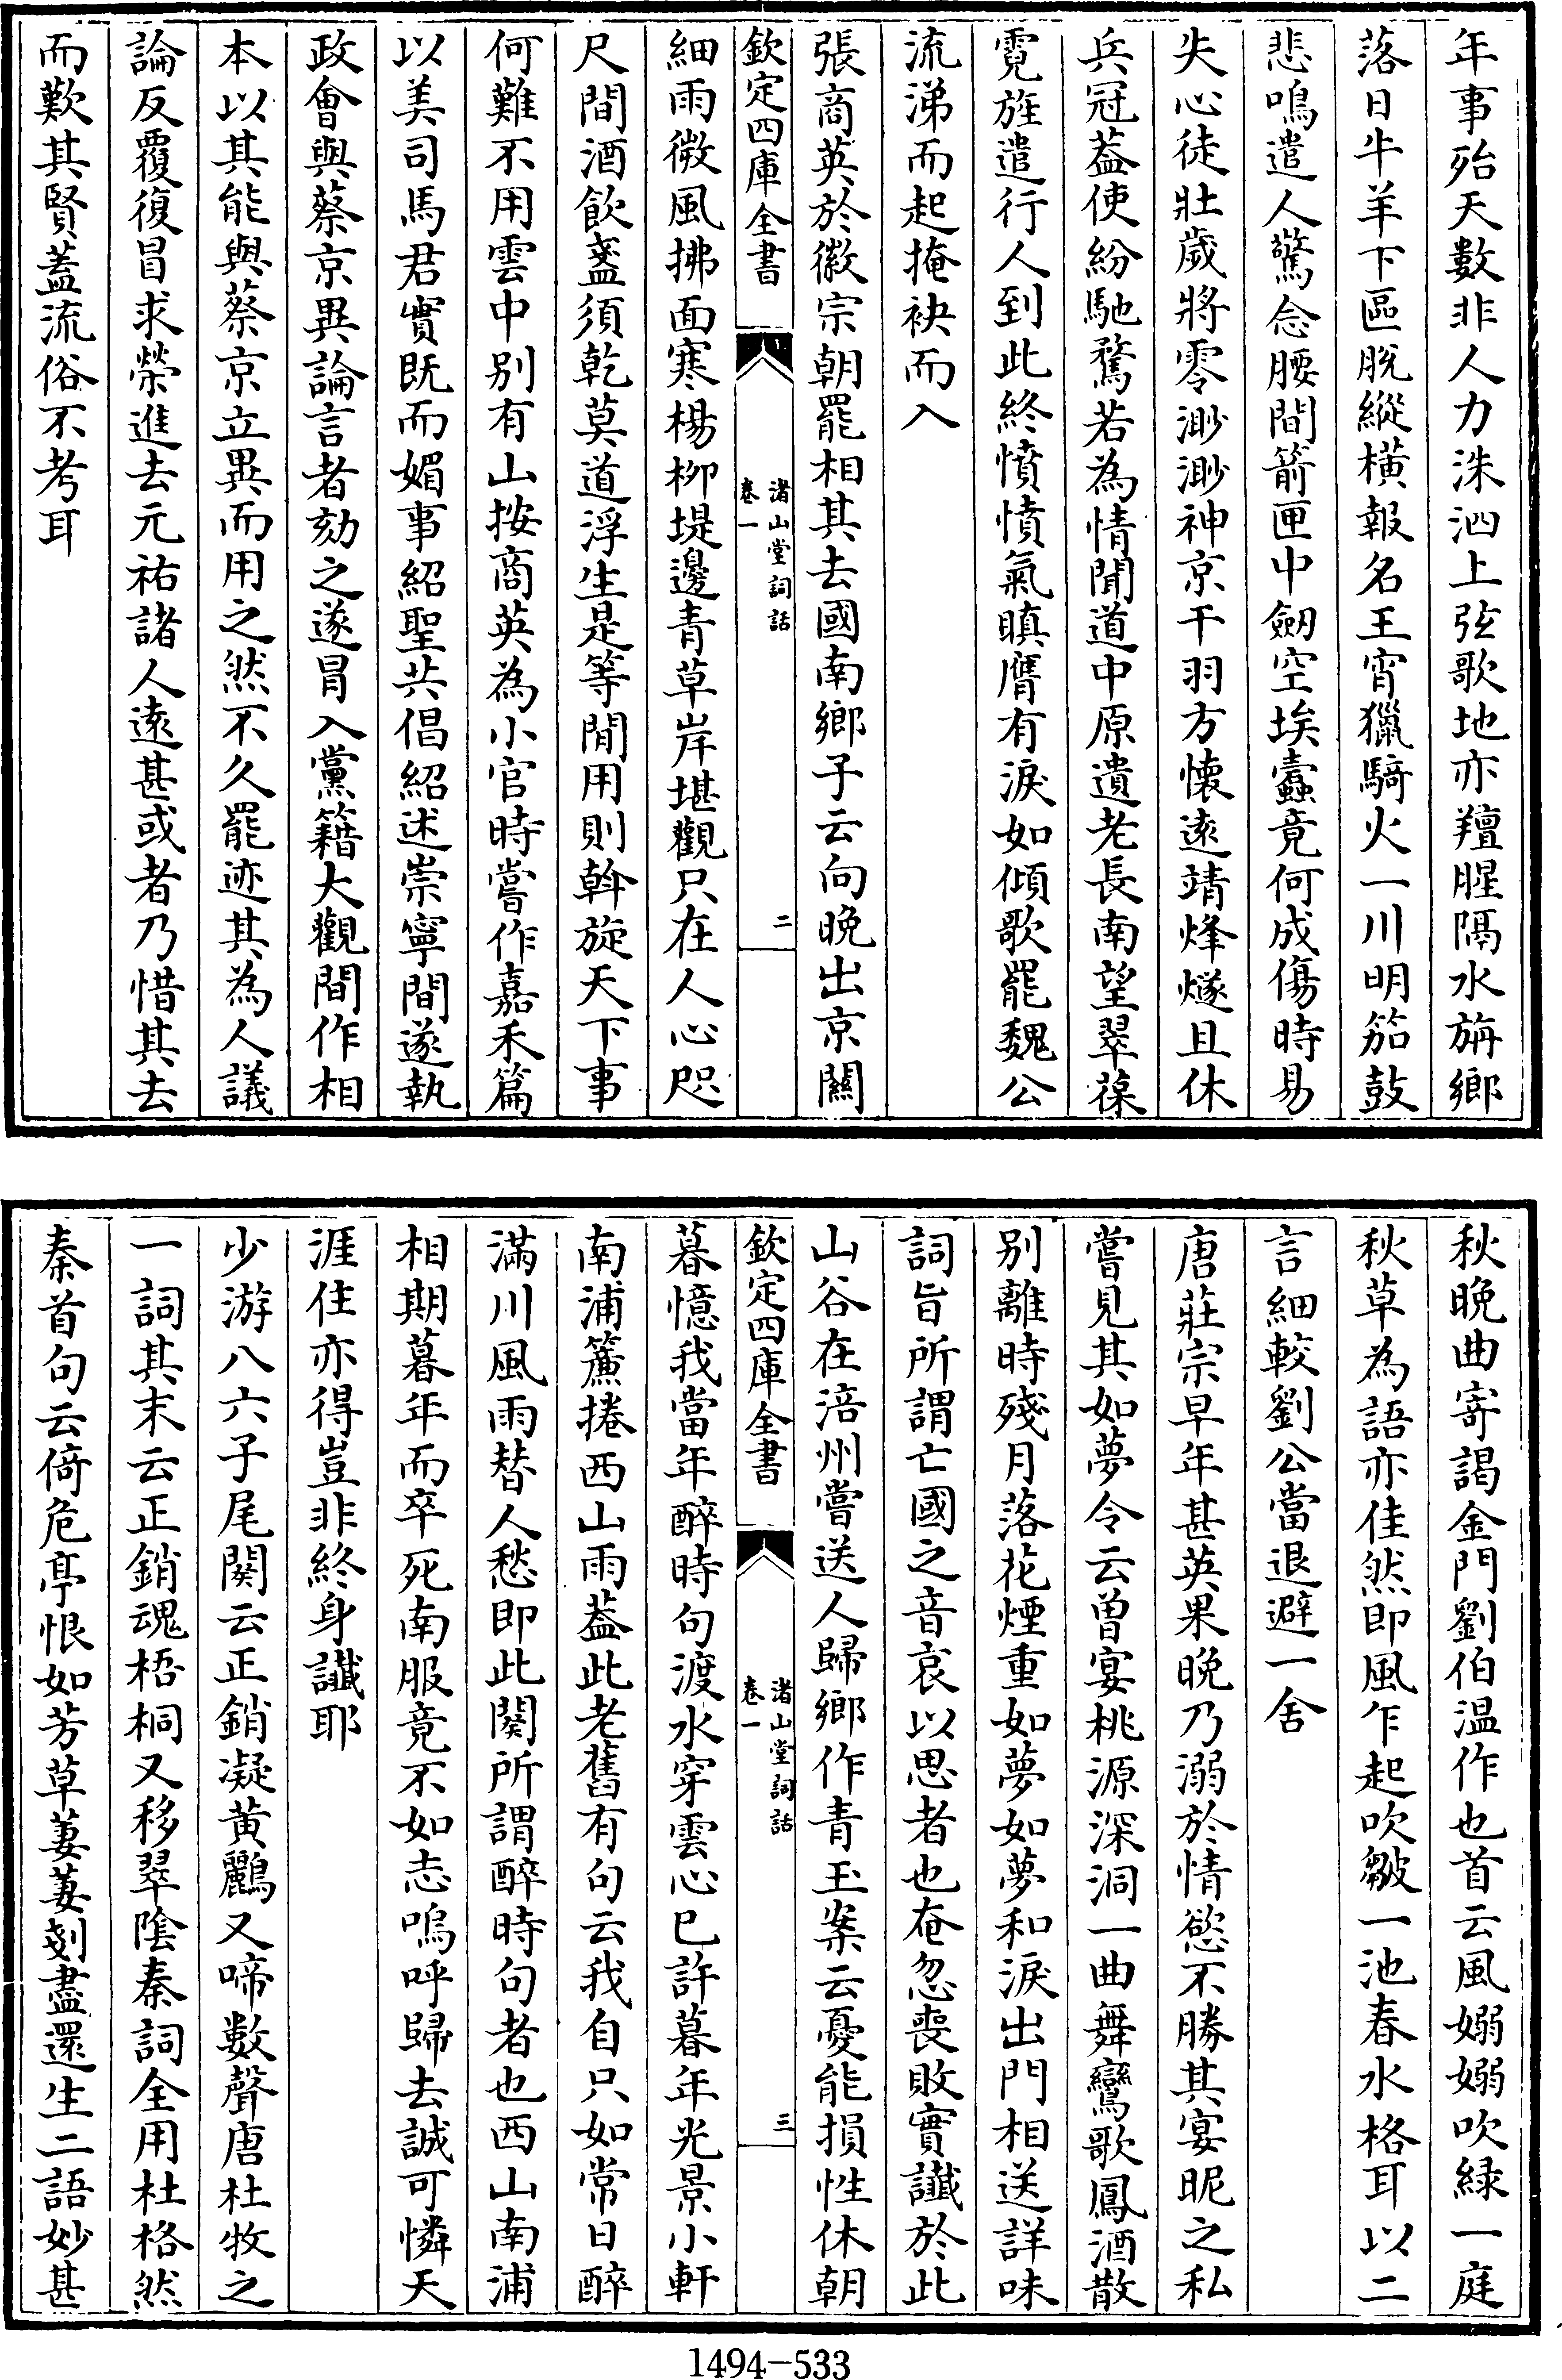 年事殆天數非人力洙泗上弦歌地亦羶腥隔水旃鄉
落日牛羊下區脫縱橫報名王宵獵騎火一川明笳鼓
悲鳴遣人驚念腰間箭匣中劒空埃蠧竟何成傷時易
失心徒壯歲將零渺渺神京干羽方懷逺靖烽燧且休
兵冠葢使紛馳騖若為情聞道中原遺老長南望翠葆
霓旌遣行人到此終憤憤氣瞋膺有淚如傾歌罷魏公
流涕而起掩袂而入
張商英於徽宗朝罷相其去國南鄉子云向晚出京關
欽定四庫全書
渚山堂詞話
卷一
二
細雨微風拂面寒楊栁堤邊青草岸堪觀只在人心咫
尺間酒飲盞須乾莫道浮生是等閒用則斡旋天下事
何難不用雲中别有山按商英為小官時嘗作嘉禾篇
以美司馬君實既而媚事紹聖共倡紹述崇寧間遂執
政㑹與蔡京異論言者劾之遂冒入黨籍大觀間作相
本以其能與蔡京立異而用之然不久罷迹其為人議
論反覆復冒求榮進去元祐諸人逺甚或者乃惜其去
而歎其賢蓋流俗不考耳
秋晚曲寄謁金門劉伯温作也首云風嫋嫋吹緑一庭
秋草為語亦佳然即風乍起吹皺一池春水格耳以二
言細較劉公當退避一舍
唐莊宗早年甚英果晚乃溺於情慾不勝其宴昵之私
嘗見其如夢令云曽宴桃源深洞一曲舞鸞歌鳳酒散
别離時殘月落花煙重如夢如夢和淚出門相送詳味
詞旨所謂亡國之音哀以思者也奄忽喪敗實䜟於此
山谷在涪州嘗送人歸鄉作青玉案云憂能損性休朝
欽定四庫全書
渚山堂詞話
卷一
三
暮憶我當年醉時句渡水穿雲心已許暮年光景小軒
南浦簾捲西山雨葢此老舊有句云我自只如常日醉
滿川風雨替人愁即此闋所謂醉時句者也西山南浦
相期暮年而卒死南服竟不如志嗚呼歸去誠可憐天
涯住亦得豈非終身䜟耶
少游八六子尾闋云正銷凝黄鸝又啼數聲唐杜牧之
一詞其末云正銷魂梧桐又移翠隂秦詞全用杜格然
秦首句云倚危亭恨如芳草萋萋剗盡還生二語妙甚
1494-533